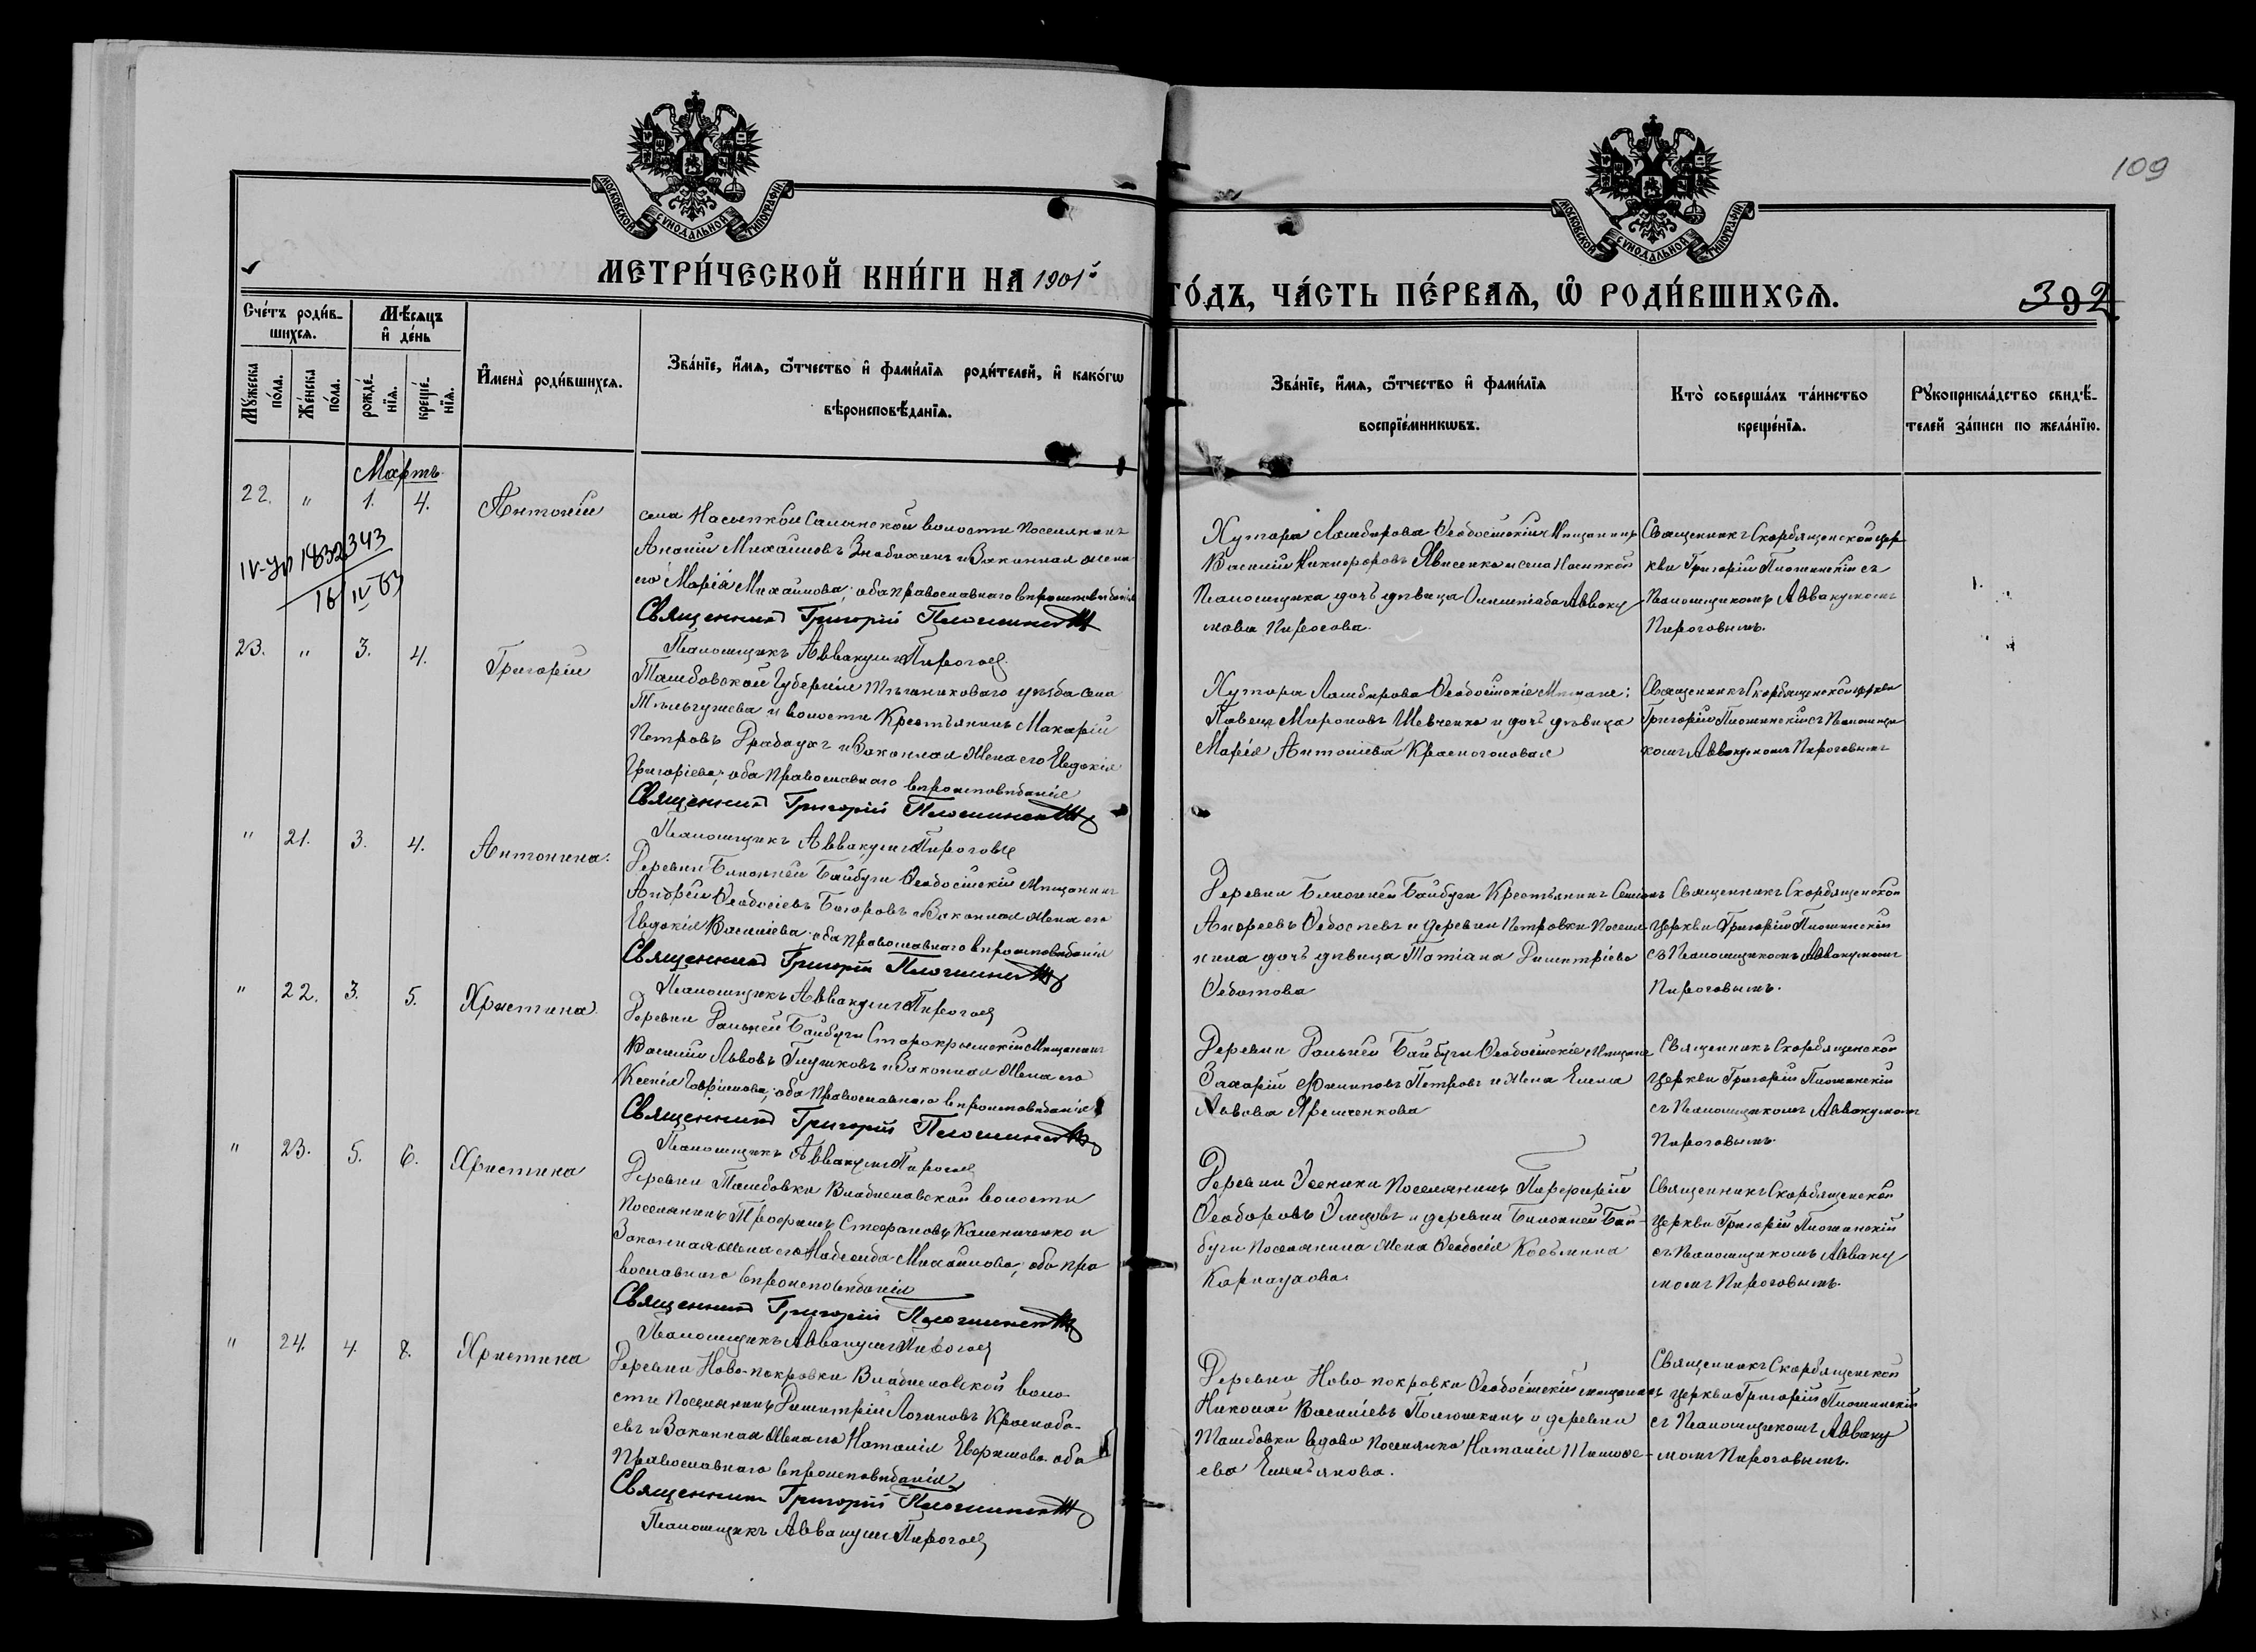 109
МОСКОВСКОЙ СУНОДАЛЬНОЙ ТИПОГРАФІИ
МОСКОВСКОЙ СУНОДАЛЬНОЙ ТИПОГРАФІИ
МЕТРИ́ЧЕСКОЙ КНИ́ГИ НА 1901й
ГО́ДЪ, ЧА́СТЬ ПЕ́РВАѦ, Ѽ РОДИ́ВШИХСѦ.
392.
Сче́тъ роди́в-
шихсѧ.
Мѣ́сѧцъ
и҆ де́нь
Мꙋ́жеска
по́ла.
Же́нска
по́ла.
рожде́-
нїѧ.
креще́-
нїѧ.
И҆мена̀ роди́вшихсѧ.
Зва́нїе, и҆́мѧ, ѻ҆́тчество и҆ фами́лїѧ роди́телей, и҆ како́гѡ
вѣроисповѣ́данїѧ.
Зва́нїе, и҆́мѧ, ѻ҆́тчество и҆ фами́лїѧ
воспрїе́мникѡвъ.
Кто̀ соверша́лъ та́инство
креще́нїѧ.
Рꙋкоприкла́дство свидѣ́-
телей за́писи по жела́нїю.
Мартъ
22. " 1. 4. Антоній
села Насыпкой Салынской волости Поселянинъ
Ананій Михаиловъ и Законная жена
его Марія Михаилова, оба православнаго вѣроисповѣданія
Священникъ Григорій
Псаломщикъ Аввакумъ Пирогов
Хутора Ламбирова Ѳеодосійскій Мѣщанинъ
Василій Никифоровъ Явисенко и села Насыпкой
Псаломщика дочь дѣвица Аввоку
мова Пирогова.
Священникъ Скорбященской цер
кви Григорій съ
Псаломщикомъ Аввакумомъ
Пироговымъ.
IV-УР 1832343
16/IV 63
23. " 3. 4. Григорій
Тамбовской Губерніи уѣзда села
и волости Крестьянинъ Макарій
Петровъ и Законная Жена его Евдокія
Григоріева, оба Православнаго вѣроисповѣданія
Священникъ Григорій
Псаломщикъ Аввакумъ Пироговъ
Хутора Ламбирова Ѳеодосійскіе Мѣщане:
Павелъ Мироновъ Шевченко и дочь дѣвица
Марія Антоніева
Священникъ Скорбященской церкви
Григорій съ Псаломщи
комъ Аввакумомъ Пироговымъ
" 21. 3. 4. Антонина.
Деревни Ближней Байбуги Ѳеодосійскій Мѣщанинъ
Андрей Ѳеодосіевъ и Законная Жена его
Евдокія Василіева, оба православнаго вѣроисповѣданія
Священникъ Григорій
Псаломщикъ Аввакумъ Пирогов
Деревни Ближней Байбуги Крестьянинъ Семенъ
Андреевъ и деревни Петровки Поселя-
нина дочь дѣвица Татіана Димитріева
Ѳедотова
Священникъ Скорбященской
Церкви Григорій
съ Псаломщикомъ Аввакумомъ
Пироговымъ.
" 22. 3. 5. Христина.
Деревни Дальней Байбуги Старокрымскій Мѣщанинъ
Василій Львовъ Глушковъ и Законная Жена его
Ксенія Гавріилова, оба Православнаго вѣроисповѣданія
Священникъ Григорій
Псаломщикъ Аввакумъ Пирогов
Деревни Дальней Байбуги Ѳеодосійскіе Мѣщане
Захарій Филиповъ Петровъ и Жена Елена
Львова Яременкова
Священникъ Скорбященской
Церкви Григорій
съ Псаломщикомъ Аввакумомъ
Пироговымъ.
" 23. 5. 6. Христина
Деревни Тамбовки Владиславской волости
Поселянинъ Трофимъ Стефановъ Калениченко и
Законная Жена его Надежда Михаилова, оба пра
вославнаго вѣроисповѣданія
Священникъ Григорій
Псаломщикъ Аввакумъ Пирогов
Деревни Поселянинъ Порфирій
Ѳеодоровъ и деревни Ближней Бай-
буги Поселянина Жена Ѳеодосія Косьмина
Карнаухова
Священникъ Скорбященской
Церкви Григорій
съ Псаломщикомъ Авваку
момъ Пироговымъ.
" 24. 4. 8. Христина
Деревни Ново-покровки Владиславской воло-
сти Поселянинъ Димитрій Логиновъ
и Законная Жена его Наталія Ефимова оба
Православнаго вѣроисповѣданія
Священникъ Григорій
Псаломщикъ Аввакумъ Пирогов
Деревни Ново покровки Ѳеодосійскій мещанинъ
Николай Василіевъ и деревни
Тамбовки вдова Поселянка Наталія Тимофе-
ева Емельянова.
Священникъ Скорбященской
церкви Григорій
съ Псаломщикомъ Авваку
момъ Пироговымъ.